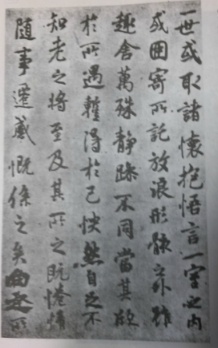 一世或取諸懷抱悟言一室之内
或因寄所託放浪形骸之外雖
趣舍萬殊静躁不同當其欣
於所遇蹔得於己怏然自足不
知老之將至及其所之既惓情
隨事遷感慨係之矣向之所